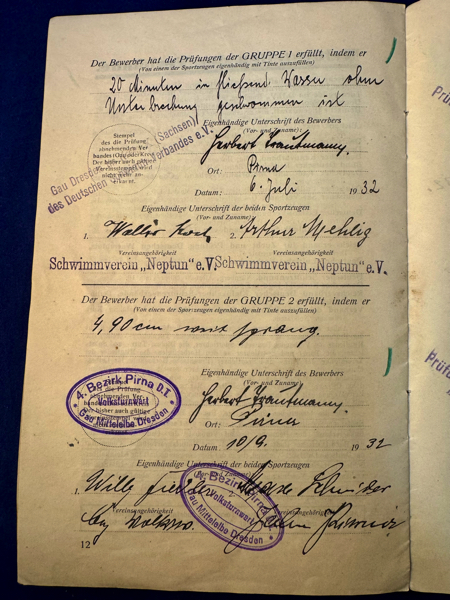 Der Bewerber hat die Prüfungen der GRUPPE 1 erfüllt, indem er
(Von einem der Sportzeugen eigenhändig mit Tinte auszufüllen)
20 Minuten in fließend. Wasser ohne
Unterbrechung geschwommen ist
Eigenhändige Unterschrift des Bewerbers
(Vor- und Zuname):
Stempel
des die Prüfung
abnehmenden Ver-
Der bisher auch gültige
Vereinsstempel wird
nicht mehr an-
erkannt.
Gau Dresden (Sachsen)
des Deutschen verbandes e.V.
Herbert Trautmann.
Ort: Pirna
Datum: 6. Juli 1932
Eigenhändige Unterschrift der beiden Sportzeugen
(Vor- und Zuname)
1. Walter 2. Arthur Mehlig
Vereinsangehörigkeit Vereinsangehörigkeit
Schwimmverein „Neptun“ e.V. Schwimmverein „Neptun“ e.V.
Der Bewerber hat die Prüfungen der GRUPPE 2 erfüllt, indem er
(Von einem der Sportzeugen eigenhändig mit Tinte auszufüllen)
4,90 cm weit sprang.
Eigenhändige Unterschrift des Bewerbers
(Vor- und Zuname)
4. Bezirk Pirna D.T.
Volksturnwart
Gau Mittelelbe Dresden
Herbert Trautmann.
Ort: Pirna
Datum 10/9. 1932
Eigenhändige Unterschrift der beiden Sportzeugen
1. Willy
Vereinsangehörigkeit
4. Bezirk Pirna
Volksturnwart
Gau Mittelelbe Dresden
12